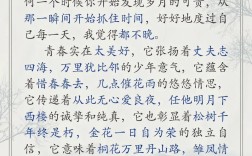 何一个时候你开始发现岁月的可贵，从
那一瞬间开始抓住时间，好好地度过自
己每一天，我觉得都不晚。
青春实在太美好，它张扬着丈夫志
四海，万里犹比邻的少年意气，它蕴含
着惜春春去，几点催花雨的悠悠情思，
它传递着从此无心爱良夜，任他明月下
西楼的诚挚和纯真，它也彰显着松树千
年终是朽，金花一日自为荣的独立自
信，它意味着桐花万里丹山路，雏凤情